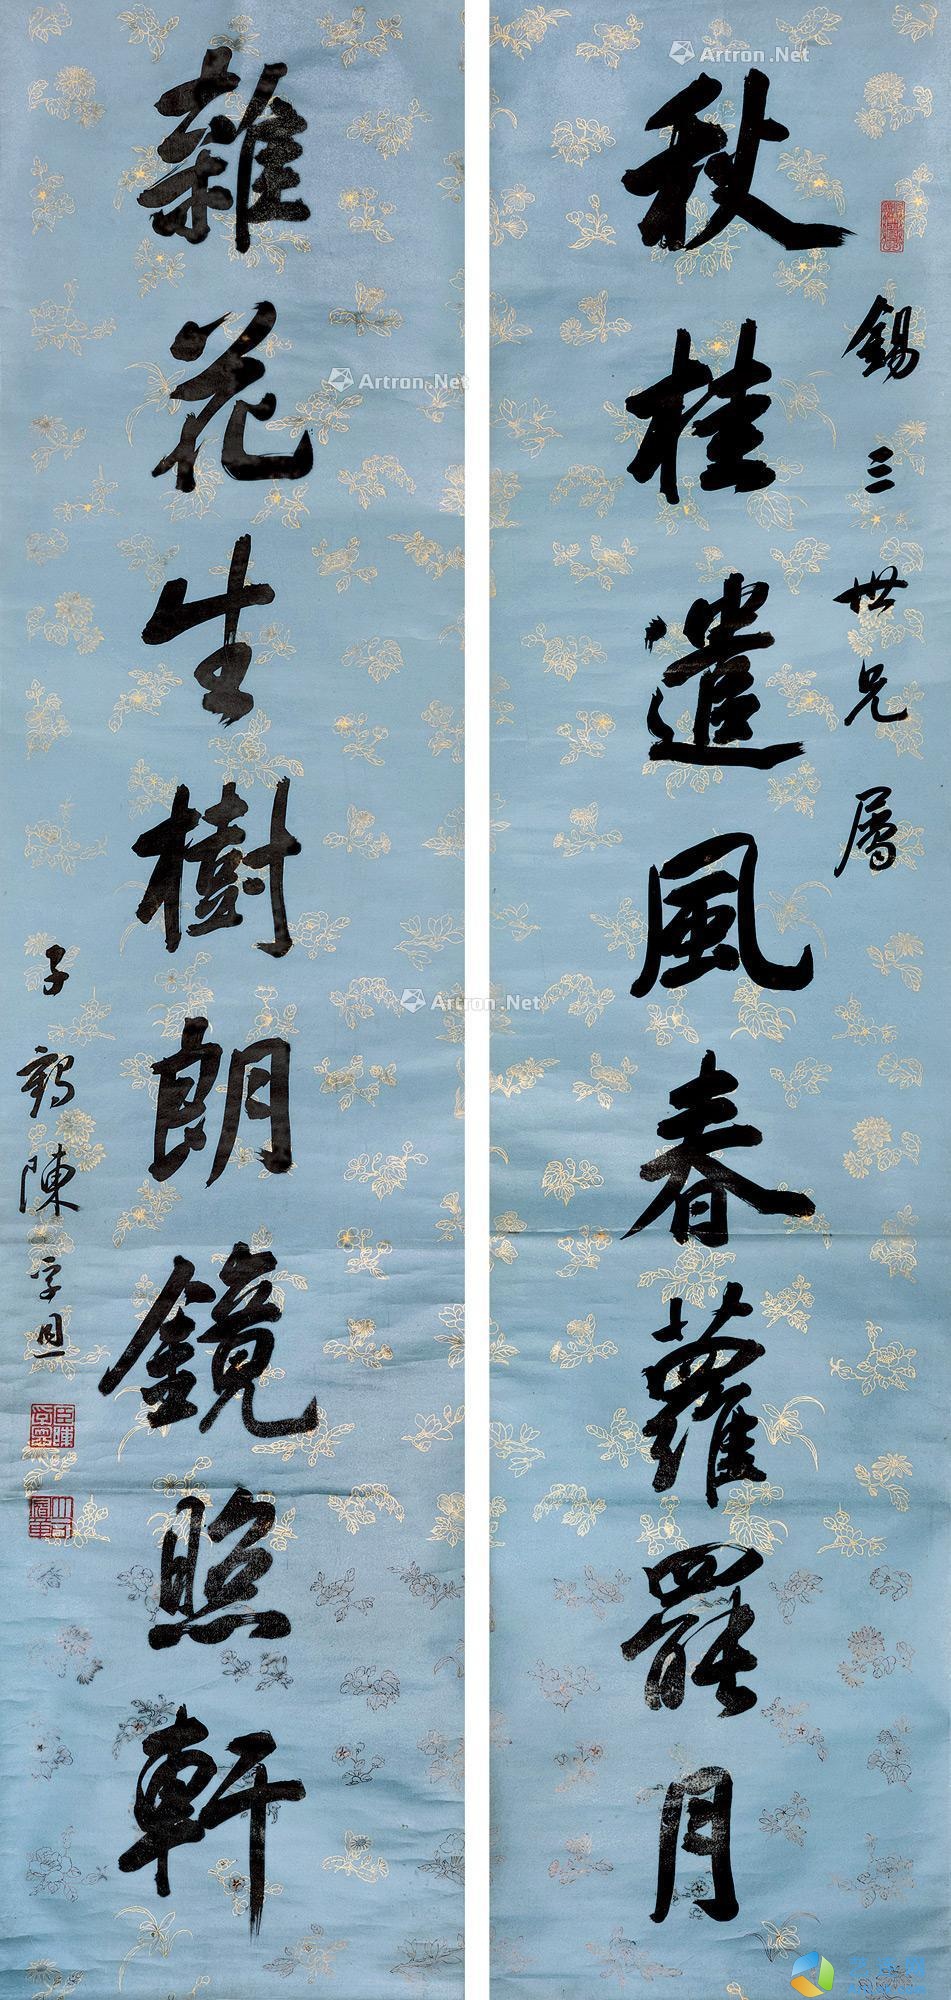 錫三世兄屬
秋桂遣風春蘿罷月
雜花生樹朗鏡照軒
子鶴陳孚恩
Artron.Net
Artron.Net
Artron.Net